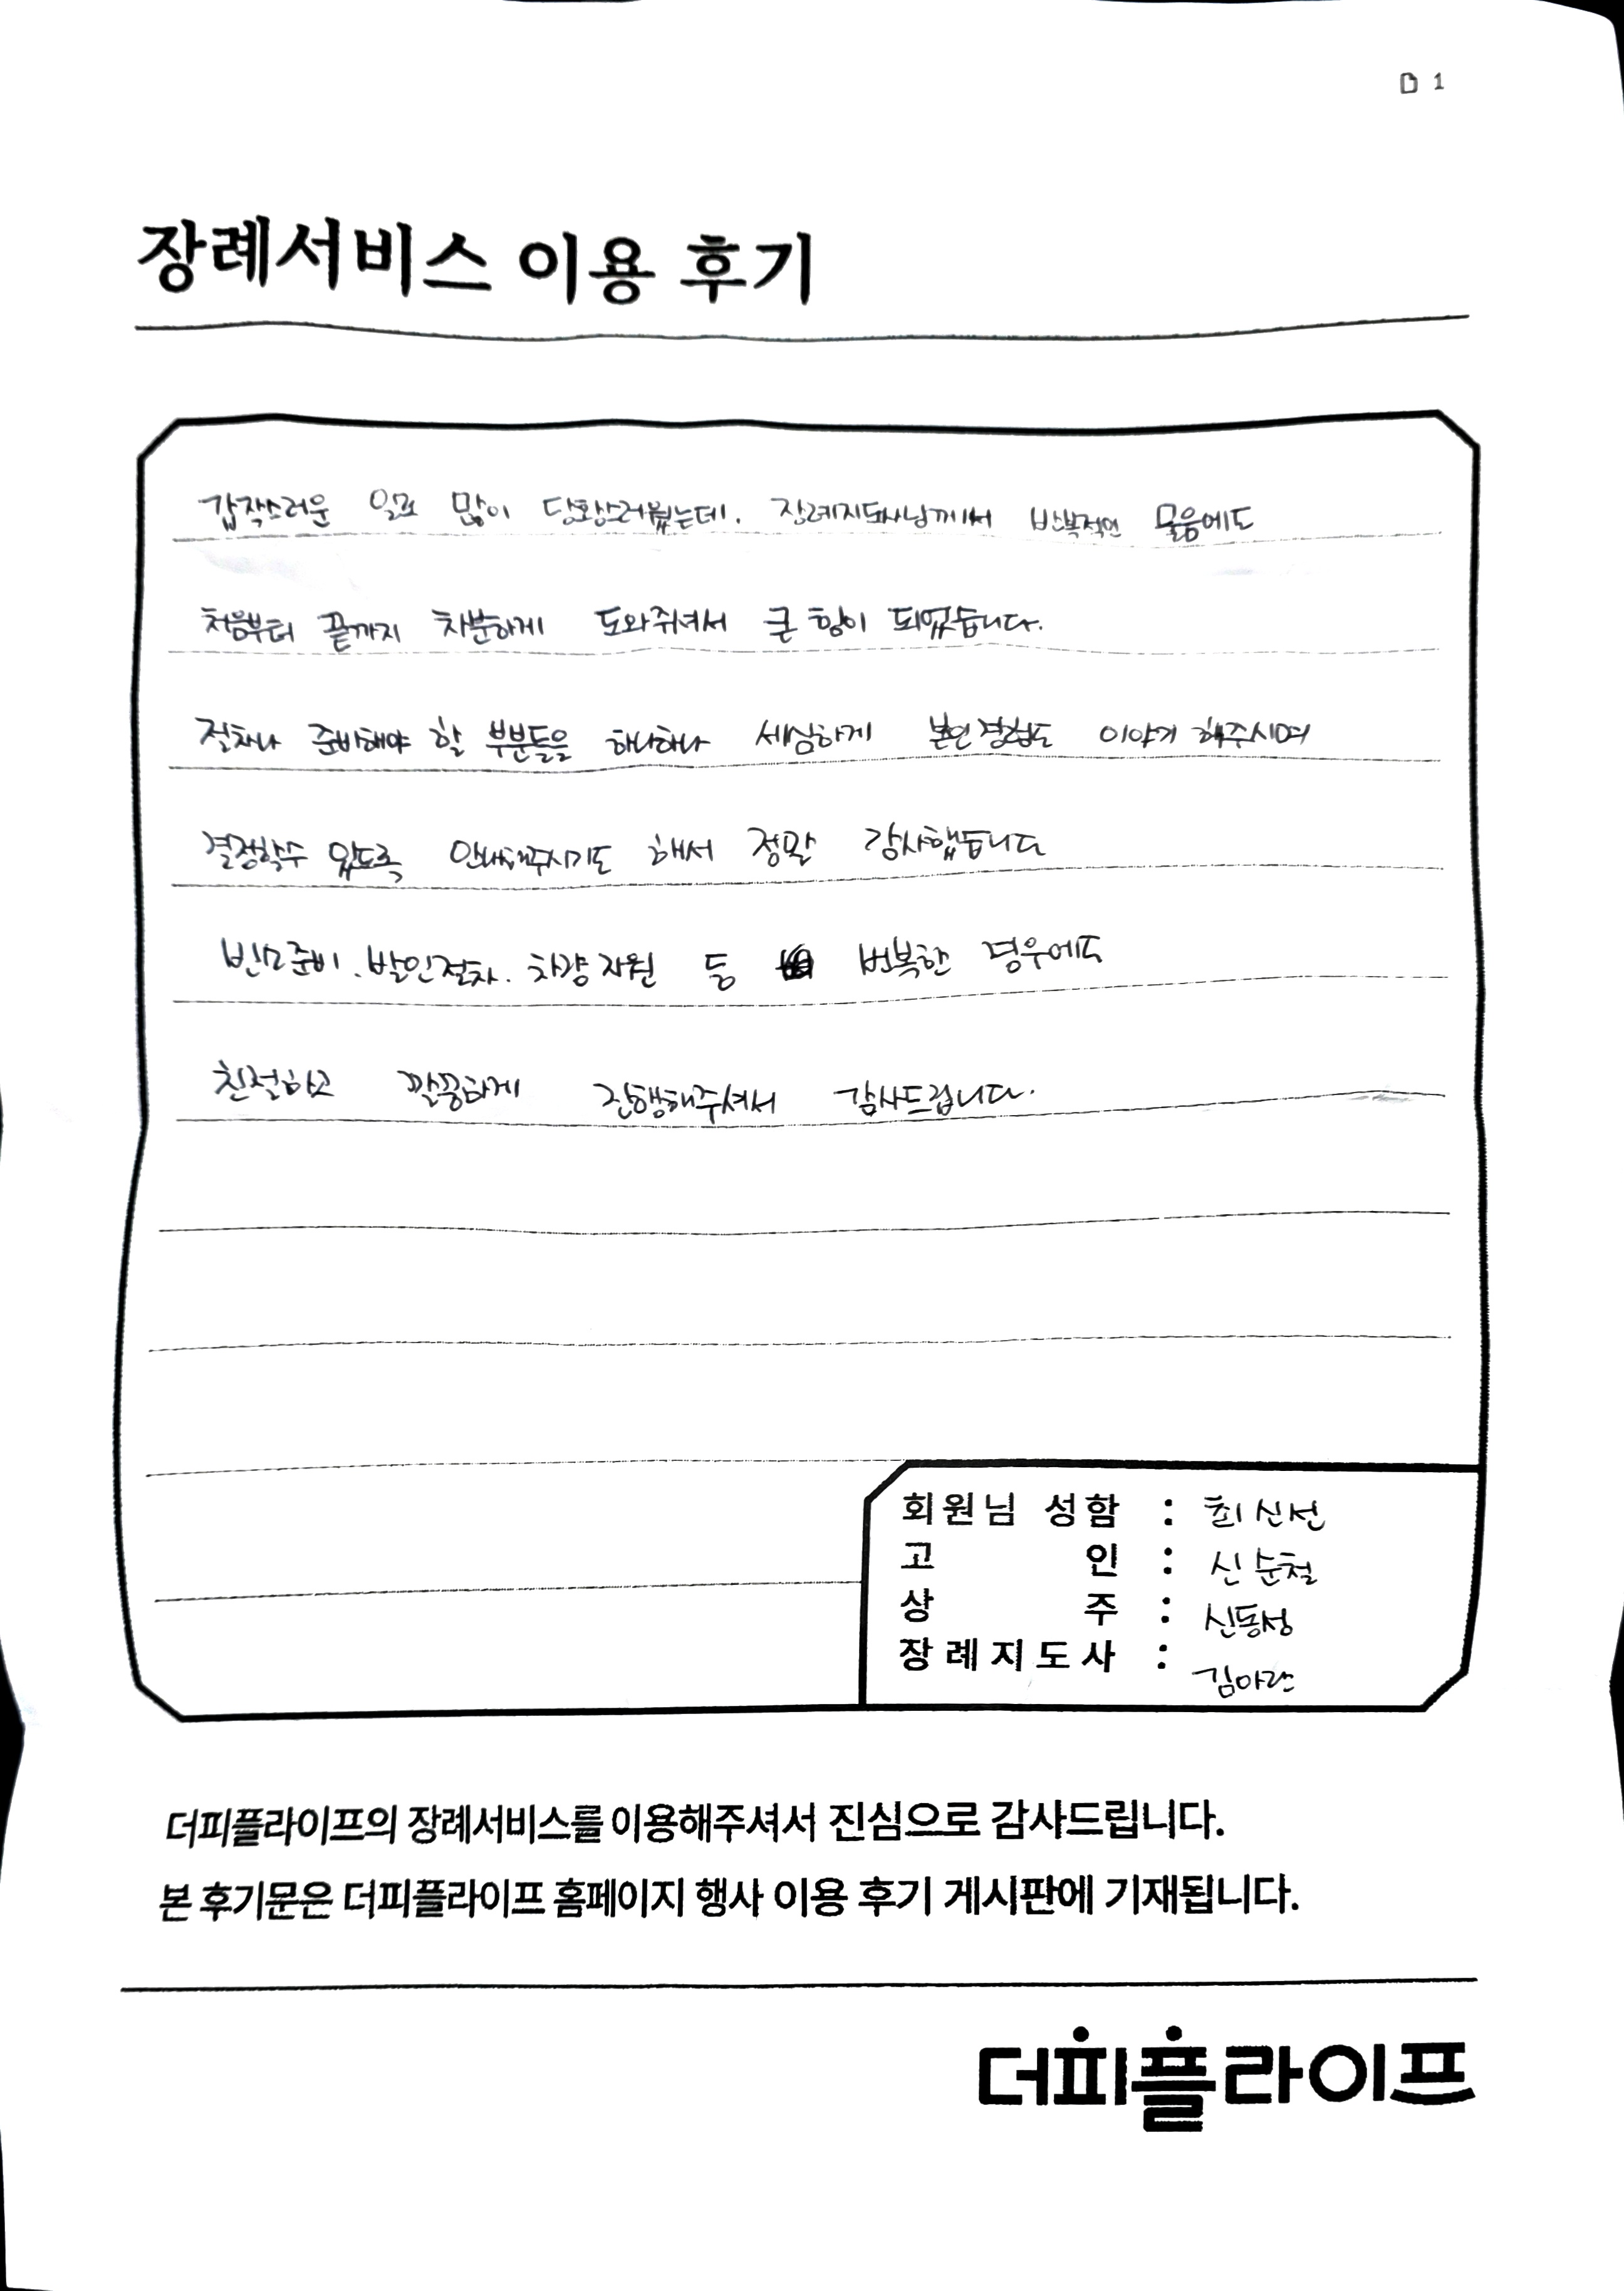 1
장례서비스 이용 후기
갑작스러운 일로 많이 당황스러웠는데. 장례지도사님께서 반복적인 물음에도
처음부터 끝까지 차분하게 도와주셔서 큰 힘이 되었습니다.
절차나 준비해야 할 부분들을 하나하나 세심하게 본인경험도 이야기 해주시며
결정할수 있도록 안내해주시기도 해서 정말 감사했습니다
빈소준비. 발인절차. 차량지원 등 번복한 경우에도
친절하고 깔끔하게 진행해주셔서 감사드립니다.
회원님 성함 : 최신선
고 인 : 신순철
상 주 : 신동성
장례지도사 : 김아란
더피플라이프의 장례서비스를 이용해주셔서 진심으로 감사드립니다.
본 후기문은 더피플라이프 홈페이지 행사 이용 후기 게시판에 기재됩니다.
더피플라이프